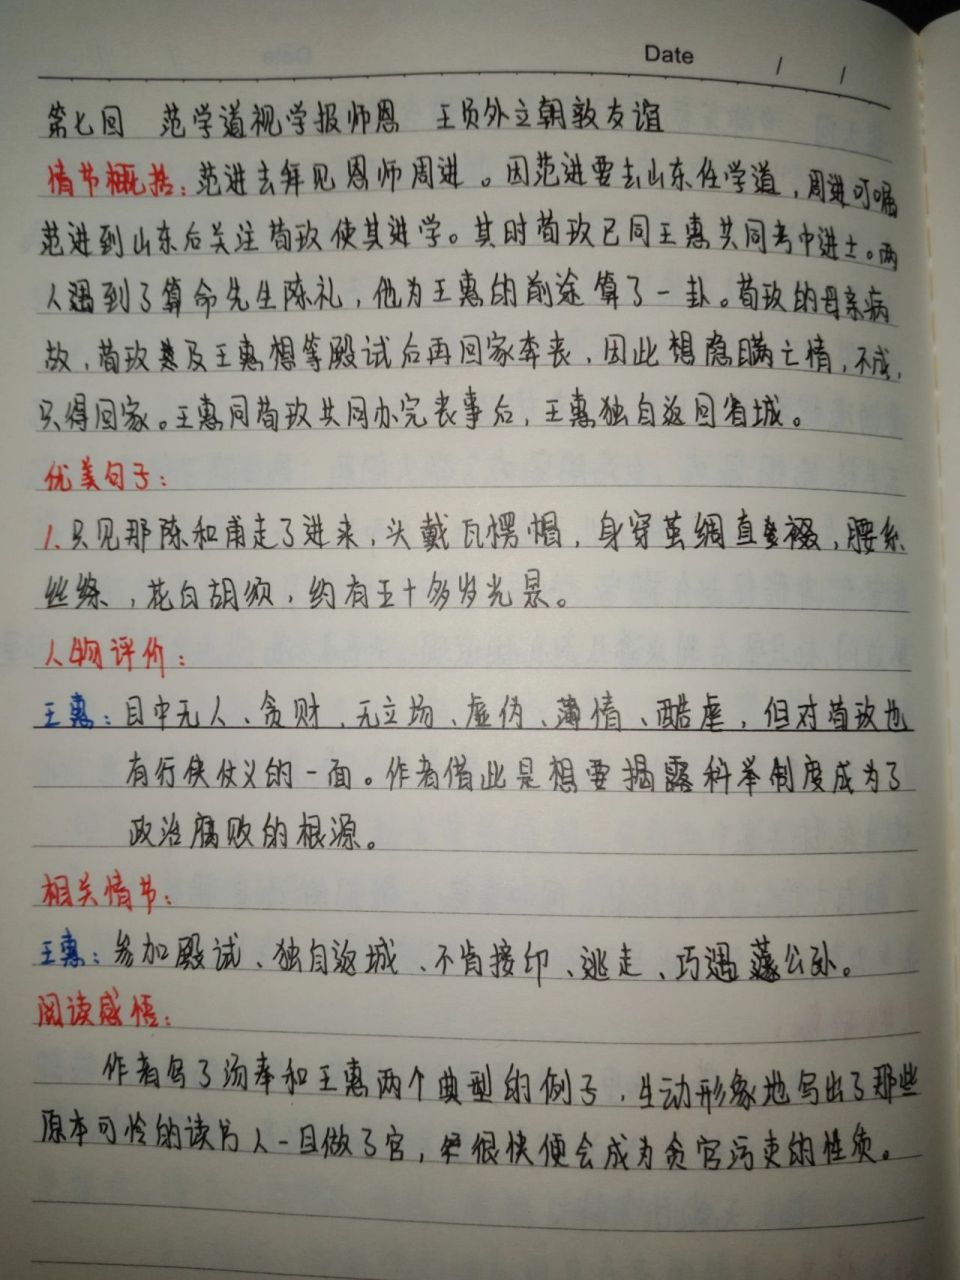 Date / /
第七回 范学道视学报师恩 王员外立朝敦友谊
情节概括：范进去拜见恩师周进。因范进要去山东任学道，周进叮嘱
范进到山东后关注荀玫使其进学。其时荀玫已同王惠共同考中进士。两
人遇到了算命先生陈礼，他为王惠的前途算了一卦。荀玫的母亲病
故，荀玫及王惠想等殿试后再回家奔丧，因此想隐瞒亡情，不成，
只得回家。王惠同荀玫共同办完丧事后，王惠独自返回省城。
优美句子：
1.只见那陈和甫走了进来，头戴瓦楞帽，身穿茧绸直裰，腰系
丝绦，花白胡须，约有五十多岁光景。
人物评价：
王惠：目中无人、贪财、无立场、虚伪、薄情、酷虐，但对荀玫也
有行侠仗义的一面。作者借此是想要揭露科举制度成为了
政治腐败的根源。
相关情节：
王惠：参加殿试、独自返城、不肯接印、逃走、巧遇蘧公孙。
阅读感悟：
作者写了汤奉和王惠两个典型的例子，生动形象地写出了那些
原本可怜的读书人一旦做了官，很快便会成为贪官污吏的性质。